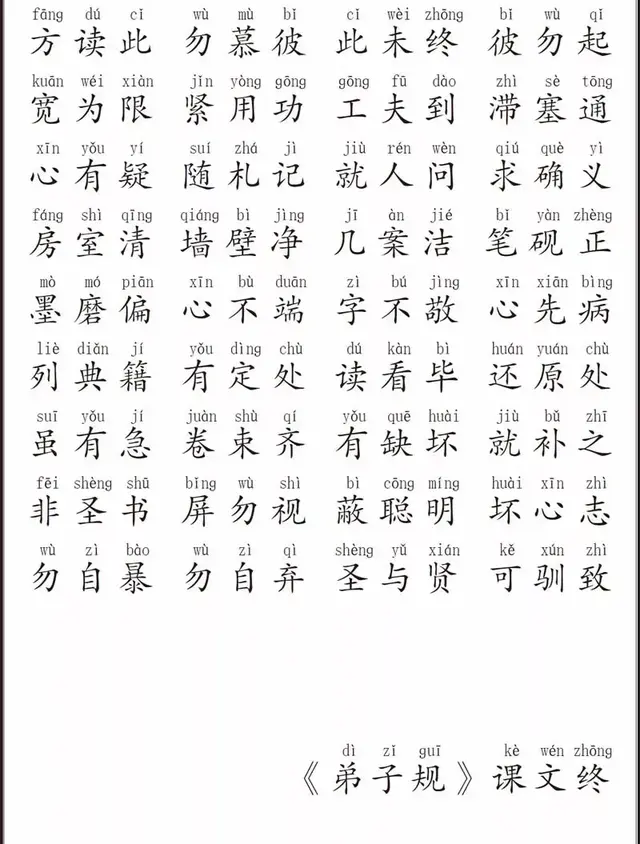 fāng dú cǐ wù mù bǐ cǐ wèi zhōng bǐ wù qǐ
方读此 勿慕彼 此未终 彼勿起
kuān wéi xiàn jǐn yòng gōng gōng fū dào zhì sè tōng
宽为限 紧用功 工夫到 滞塞通
xīn yǒu yí suí zhá jì jiù rén wèn qiú què yì
心有疑 随札记 就人问 求确义
fáng shì qīng qiáng bì jìng jī àn jié bǐ yàn zhèng
房室清 墙壁净 几案洁 笔砚正
mò mó piān xīn bù duān zì bú jìng xīn xiān bìng
墨磨偏 心不端 字不敬 心先病
liè diǎn jí yǒu dìng chù dú kàn bì huán yuán chù
列典籍 有定处 读看毕 还原处
suī yǒu jí juàn shù qí yǒu quē huài jiù bǔ zhī
虽有急 卷束齐 有缺坏 就补之
fēi shèng shū bǐng wù shì bì cōng míng huài xīn zhì
非圣书 屏勿视 蔽聪明 坏心志
wù zì bào wù zì qì shèng yǔ xián kě xún zhì
勿自暴 勿自弃 圣与贤 可驯致
dì zǐ guī kè wén zhōng
《弟子规》课文终